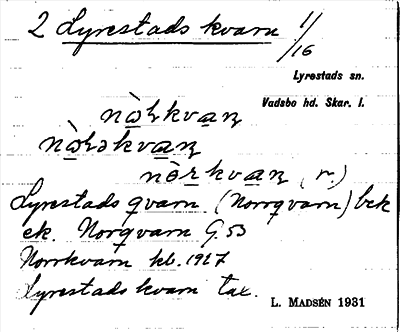 2 Lyrestads kvarn 1/16
Lyrestads sn.
Vadsbo hd. Skar. l.
nòɫkvaɳ
nòɫəkvaɳ
nòrkvaɳ (r.)
Lyrestads qvarn (Norrqvarn) bek
ek. Norqvarn G. 53
Norrkvarn kb. 1927
Lyrestads kvarn tax.
L. MADSÉN 1931